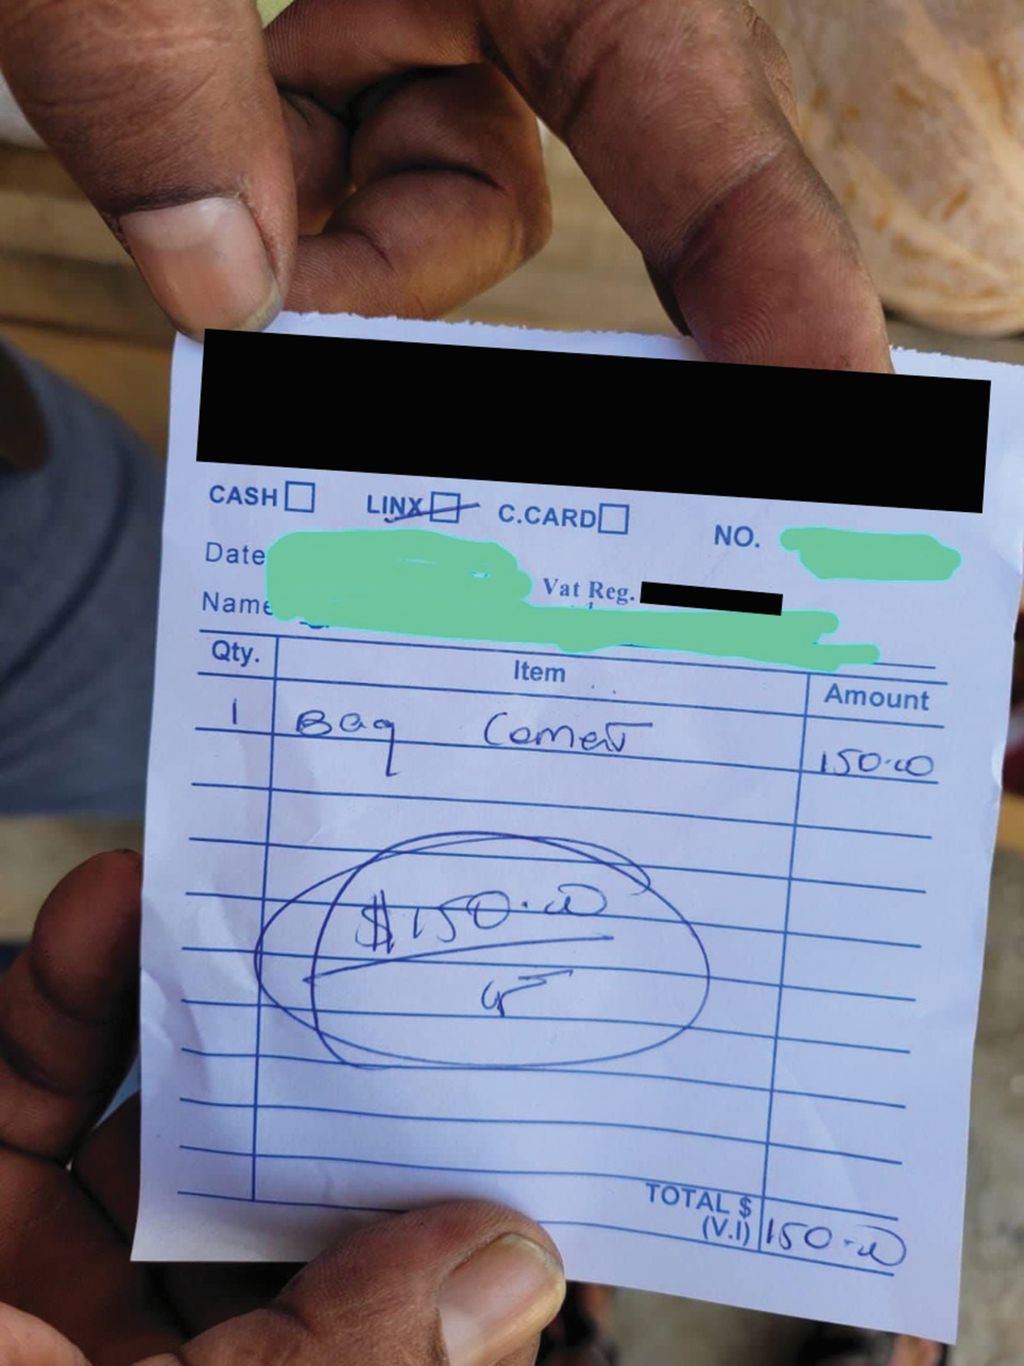 CASH LINX C.CARD NO.
Date Vat Reg.
Name
Qty. Item Amount
1 Bag Cement 150.00
$150.00
TOTAL $ 150.00
(V.I)